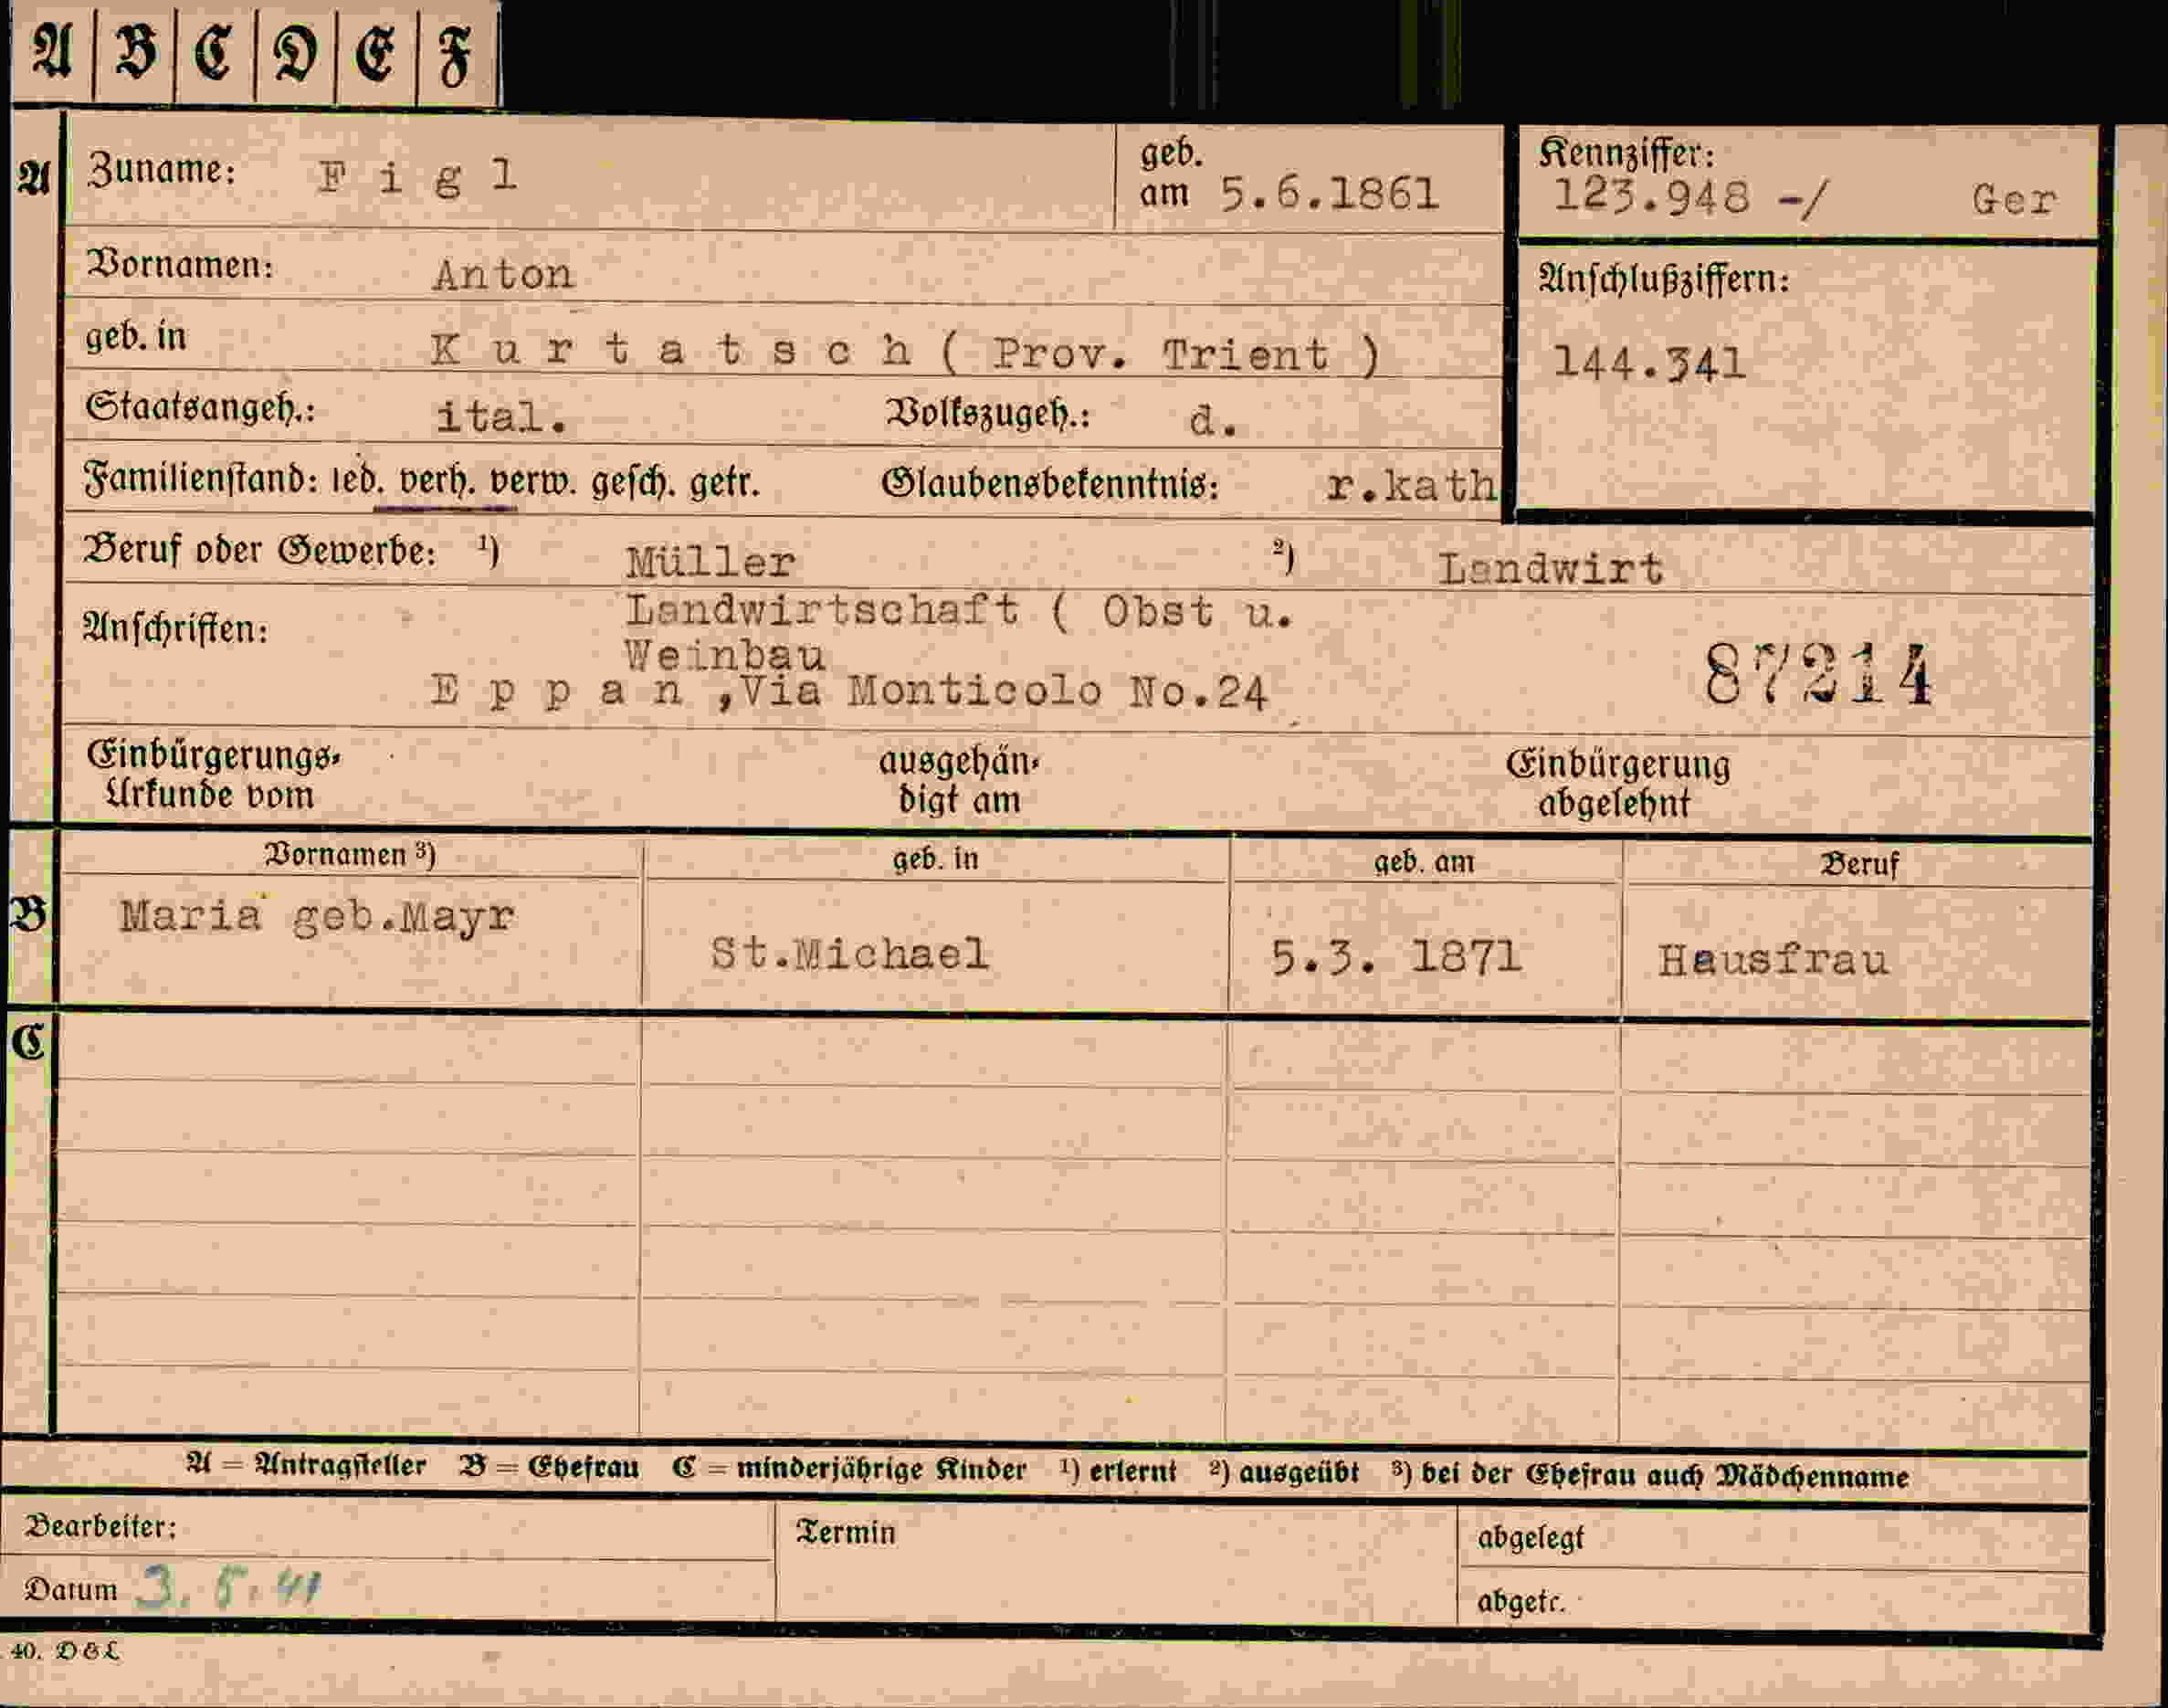 A B C D E F
A Zuname: F i g l geb. am 5.6.1861 Kennziffer: 123.948 -/ Ger
Vornamen: Anton Anschlußziffern:
geb. in K u r t a t s c h ( Prov. Trient ) 144.341
Staatsangeh.: ital. Volkszugeh.: d.
Familienstand: led. verh. verw. gesch. getr. Glaubensbekenntnis: r.kath
Beruf oder Gewerbe: ¹) Müller ²) Landwirt
Landwirtschaft ( Obst u.
Anschriften:
Weinbau
E p p a n ,Via Monticolo No.24 87214
Einbürgerungs- ausgehän- Einbürgerung
Urkunde vom digt am abgelehnt
Vornamen ³) geb. in geb. am Beruf
B Maria geb.Mayr
St.Michael 5.3. 1871 Hausfrau
C
A = Antragsteller B = Ehefrau C = minderjährige Kinder ¹) erlernt ²) ausgeübt ³) bei der Ehefrau auch Mädchenname
Bearbeiter: Termin abgelegt
Datum 3.5.41 abgetr.
40. D&L